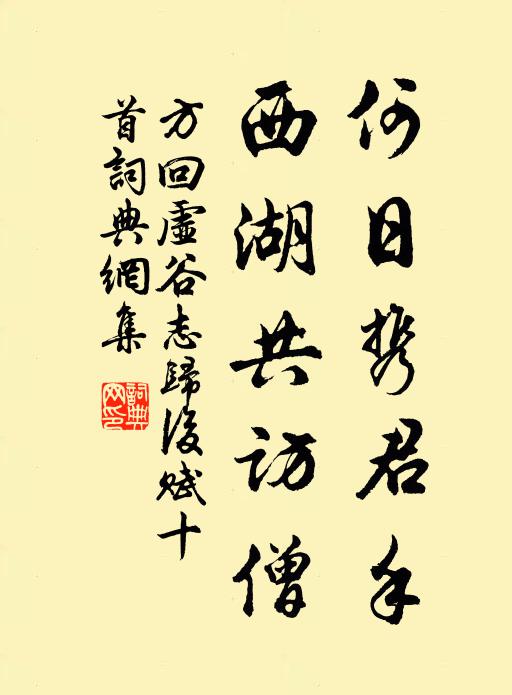 何日携君手
西湖共访僧
方回虚谷志歸後赋十
首詞典網集
詞典
网印